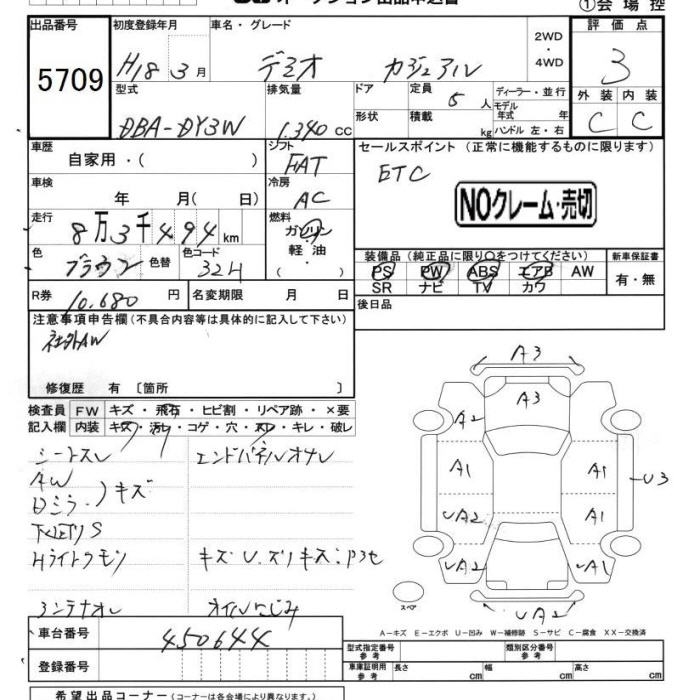 オークション出品申込書
①会場控
出品番号
5709
初度登録年月
H18 3月
車名・グレード
デミオ カジュアル
2WD
・
4WD
評価点
3
型式
DBA-DY3W
排気量
1.340 cc
ドア
形状
定員
5人
積載
kg
ディーラー・並行
モデル
年式 年
ハンドル 左・右
外装 内装
C C
車歴
自家用・( )
シフト
FAT
セールスポイント (正常に機能するものに限ります)
ETC
車検
年 月( 日)
冷房
AC
NOクレーム・売切
走行
8万3千494km
燃料
ガソリン
軽・油
( )
色
ブラウン
色替
色コード
32H
装備品 (純正品に限り○をつけてください)
PS PW ABS エアB AW
SR ナビ TV カワ
新車保証書
有・無
R券
10,680円
名変期限 月 日
後日品
注意事項申告欄 (不具合内容等は具体的に記入して下さい)
社外AW
修復歴 有 〔箇所 〕
検査員
記入欄
FW キズ・飛石・ヒビ割・リペア跡・×要
内装 キズ・汚レ・コゲ・穴・スレ・キレ・破レ
シートスレ
エンドパネルオサレ
AW
Dミラ
キズ
Hライトクモリ
キズU.ズリキズ:P3セ
オイルにじみ
A3
A3
A2
A1
A1
U3
UA2
A1
UA2
UA1
UA2
スペア
A-キズ E-エクボ U-凹み W-補修跡 S-サビ C-腐食 XX-交換済
車台番号
450644
登録番号
型式指定番号
参考
類別区分番号
参考
車庫証明用
参考
長さ cm
幅 cm
高さ cm
希望出品コーナー (コーナーは各会場により異なります。)